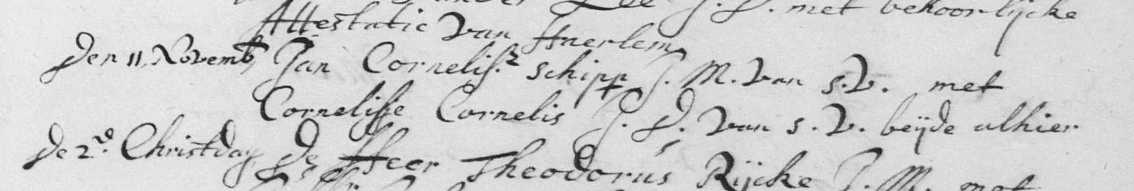 J. D. met behoorlijcke
Attestatie van Haerlem
Den 11. Novemb, Jan Cornelisz schipp J. M. van s. V. met
Cornelisse Cornelis J. D. van s. V. beijde alhier
De 2e. Christdag De Heer Theodorus Rijcke J. M. met